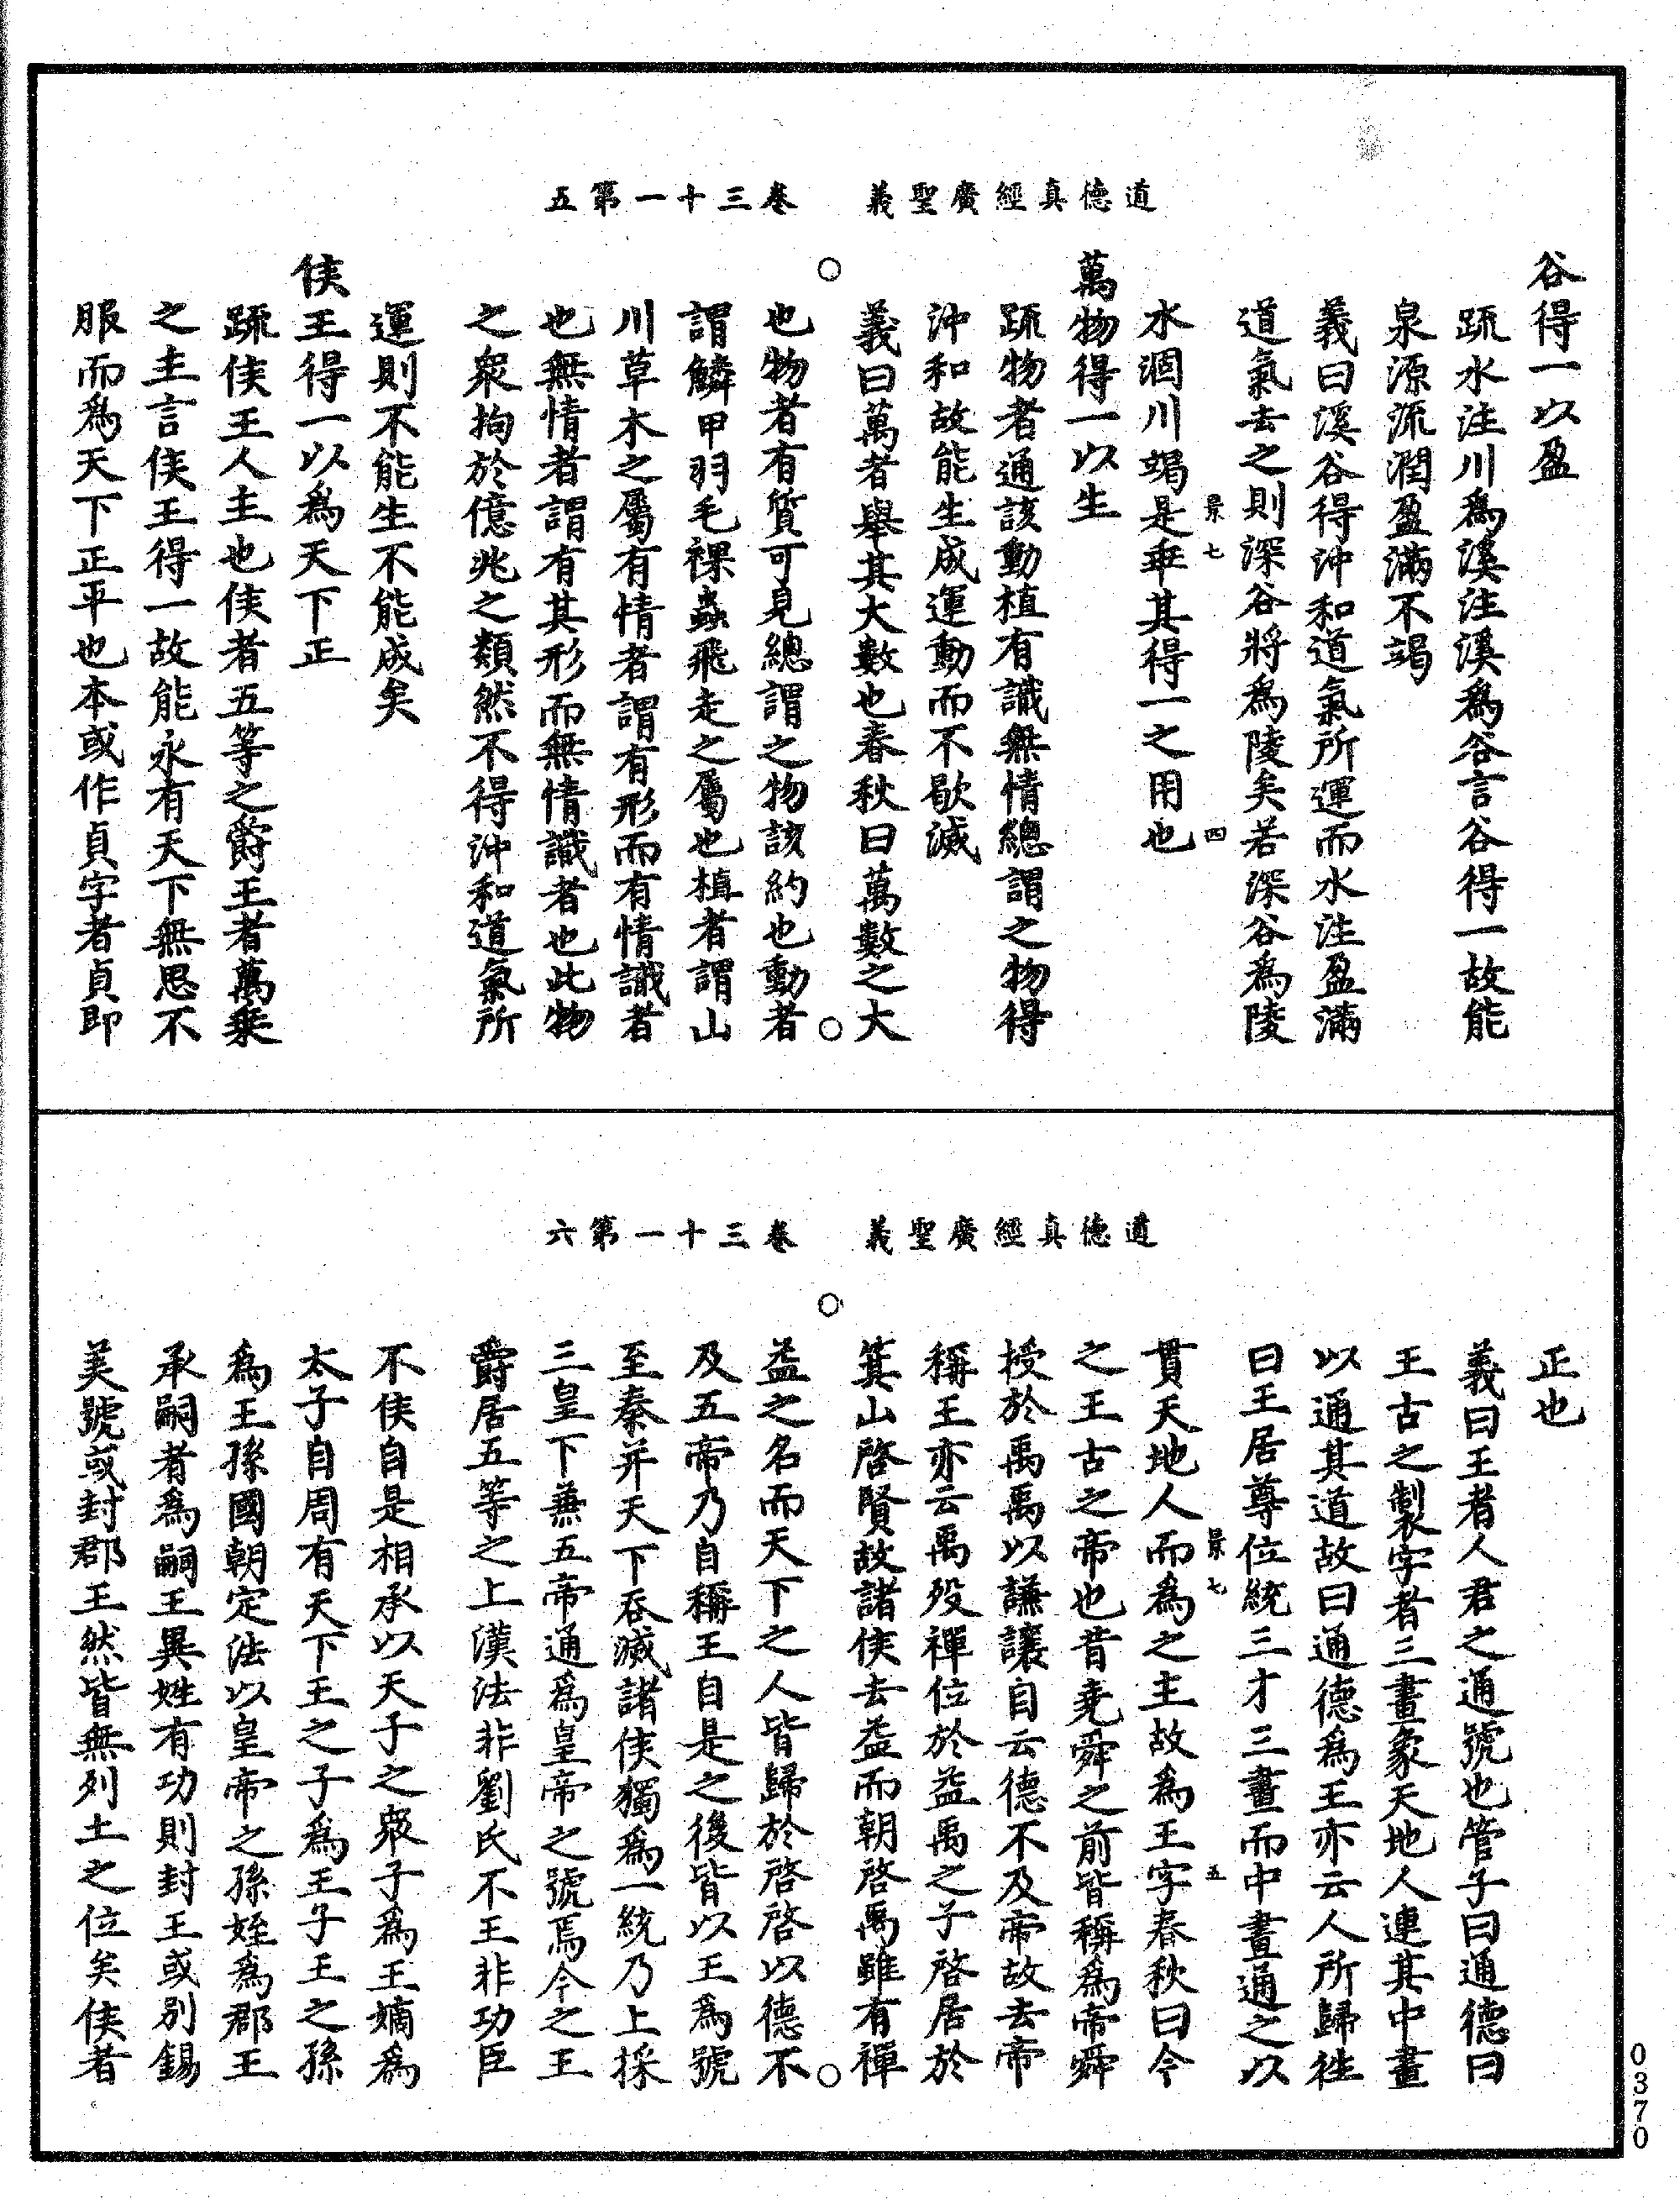 道德真經廣聖義　卷三十一第五
谷得一以盈
䟽水注川爲溪注溪爲谷言谷得一故能
泉源流潤盈滿不竭
義曰溪谷得沖和道氣所運而水注盈滿
道氣去之則深谷將爲陵矣若深谷爲陵
景七　四
水涸川竭是乖其得一之用也
萬物得一以生
䟽物者通該動植有識無情總謂之物得
沖和故能生成運動而不歇滅
義曰萬者舉其大數也春秋曰萬數之大
也物者有質可見總謂之物該約也動者
謂鱗甲羽毛裸蟲飛走之屬也植者謂山
川草木之屬有情者謂有形而有情識者
也無情者謂有其形而無情識者也此物
之衆拘於億兆之類然不得沖和道氣所
運則不能生不能成矣
侯王得一以爲天下正
䟽侯王人主也侯者五等之爵王者萬乗
之主言侯王得一故能永有天下無思不
服而爲天下正平也本或作貞字者貞即
道德真經廣聖義　卷三十一第六
正也
義曰王者人君之通號也管子曰通德曰
王古之製字者三畫象天地人連其中畫
以通其道故曰通德爲王亦云人所歸往
曰王居尊位統三才三畫而中畫通之以
景七　五
貫天地人而爲之主故爲王字春秋曰今
之王古之帝也昔堯舜之前皆稱爲帝舜
授於禹禹以謙讓自云德不及帝故去帝
稱王亦云禹歿禪位於益禹之子啓居於
箕山啓賢故諸侯去益而朝啓禹雖有禪
益之名而天下之人皆歸於啓啓以德不
及五帝乃自稱王自是之後皆以王爲號
至秦并天下吞滅諸侯獨爲一統乃上採
三皇下兼五帝通爲皇帝之號焉今之王
爵居五等之上漢法非劉氏不王非功臣
不侯自是相承以天子之衆子爲王嫡爲
太子自周有天下王之子爲王子王之孫
爲王孫國朝定法以皇帝之孫姪爲郡王
承嗣者爲嗣王異姓有功則封王或别錫
美號或封郡王然皆無列土之位矣侯者
0370